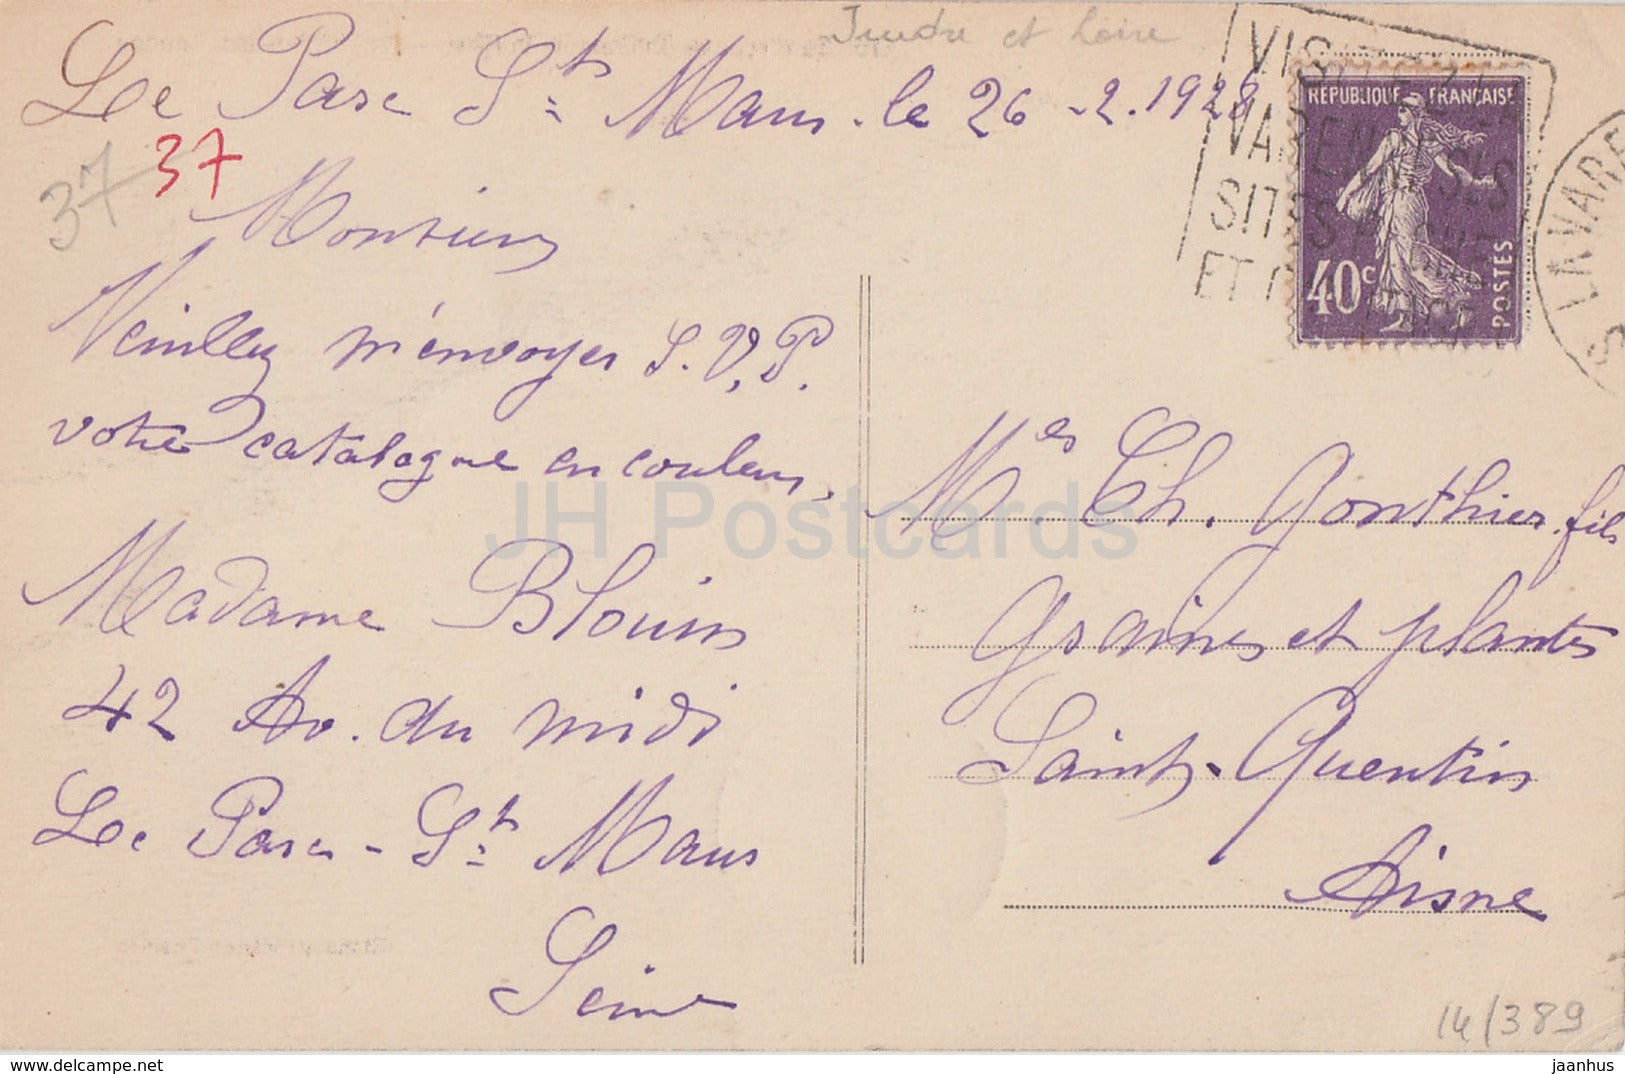 Indre et Loire
Le Parc St Maur. le 26-2.1928
37 37
Monsieur
Veuillez m'envoyer S.V.P.
votre catalogue en couleurs.
Madame Blouin
42 Av. du midi
Le Parc-St Maur
Seine
VISITEZ LA
VARENNE
SITES
ET
REPUBLIQUE FRANÇAISE
40c
POSTES
LA VARE
Mes Ch. Gonthier fils
graines et plantes
Saint-Quentin
Aisne
JH Postcards
14/389
http://jhpostcards.com
jaanhus